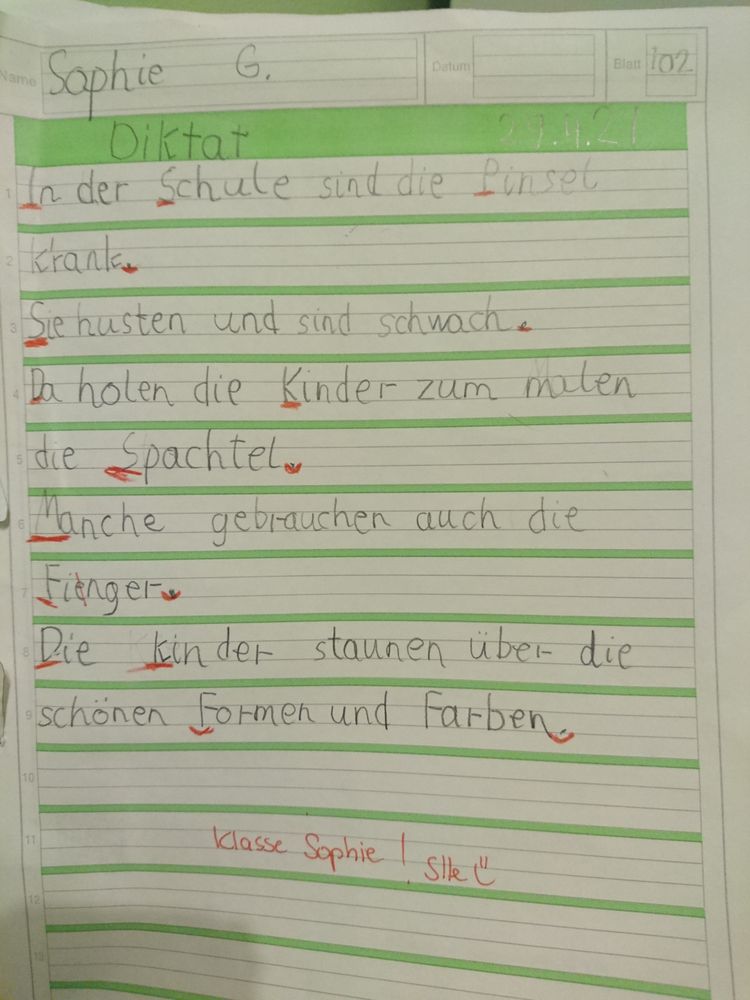 Name Sophie G. Datum Blatt 102
Diktat 29.4.21
1 In der Schule sind die Pinsel
2 krank.
3 Sie husten und sind schwach.
4 Da holen die Kinder zum malen
5 die Spachtel.
6 Manche gebrauchen auch die
7 Fienger.
8 Die Kinder staunen über die
9 schönen Formen und Farben.
10
11 Klasse Sophie!
12
13